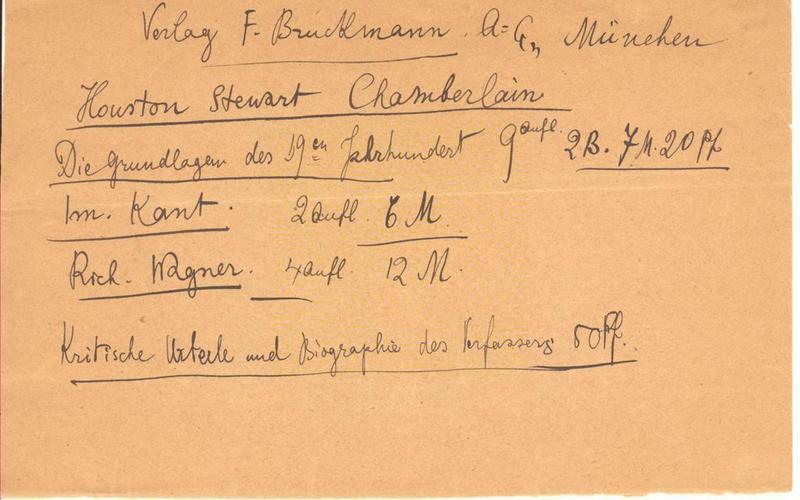 Verlag F. Bruckmann. A=G, München
Houston Stewart Chamberlain
Die Grundlagen des 19en Jahrhundert 9 aufl. 2B. 7 M. 20 Pf
Im. Kant. 2 aufl. 6 M.
Rich. Wagner. 4 aufl. 12 M.
Kritische Urteile und Biographie des Verfassers 50 Pf.